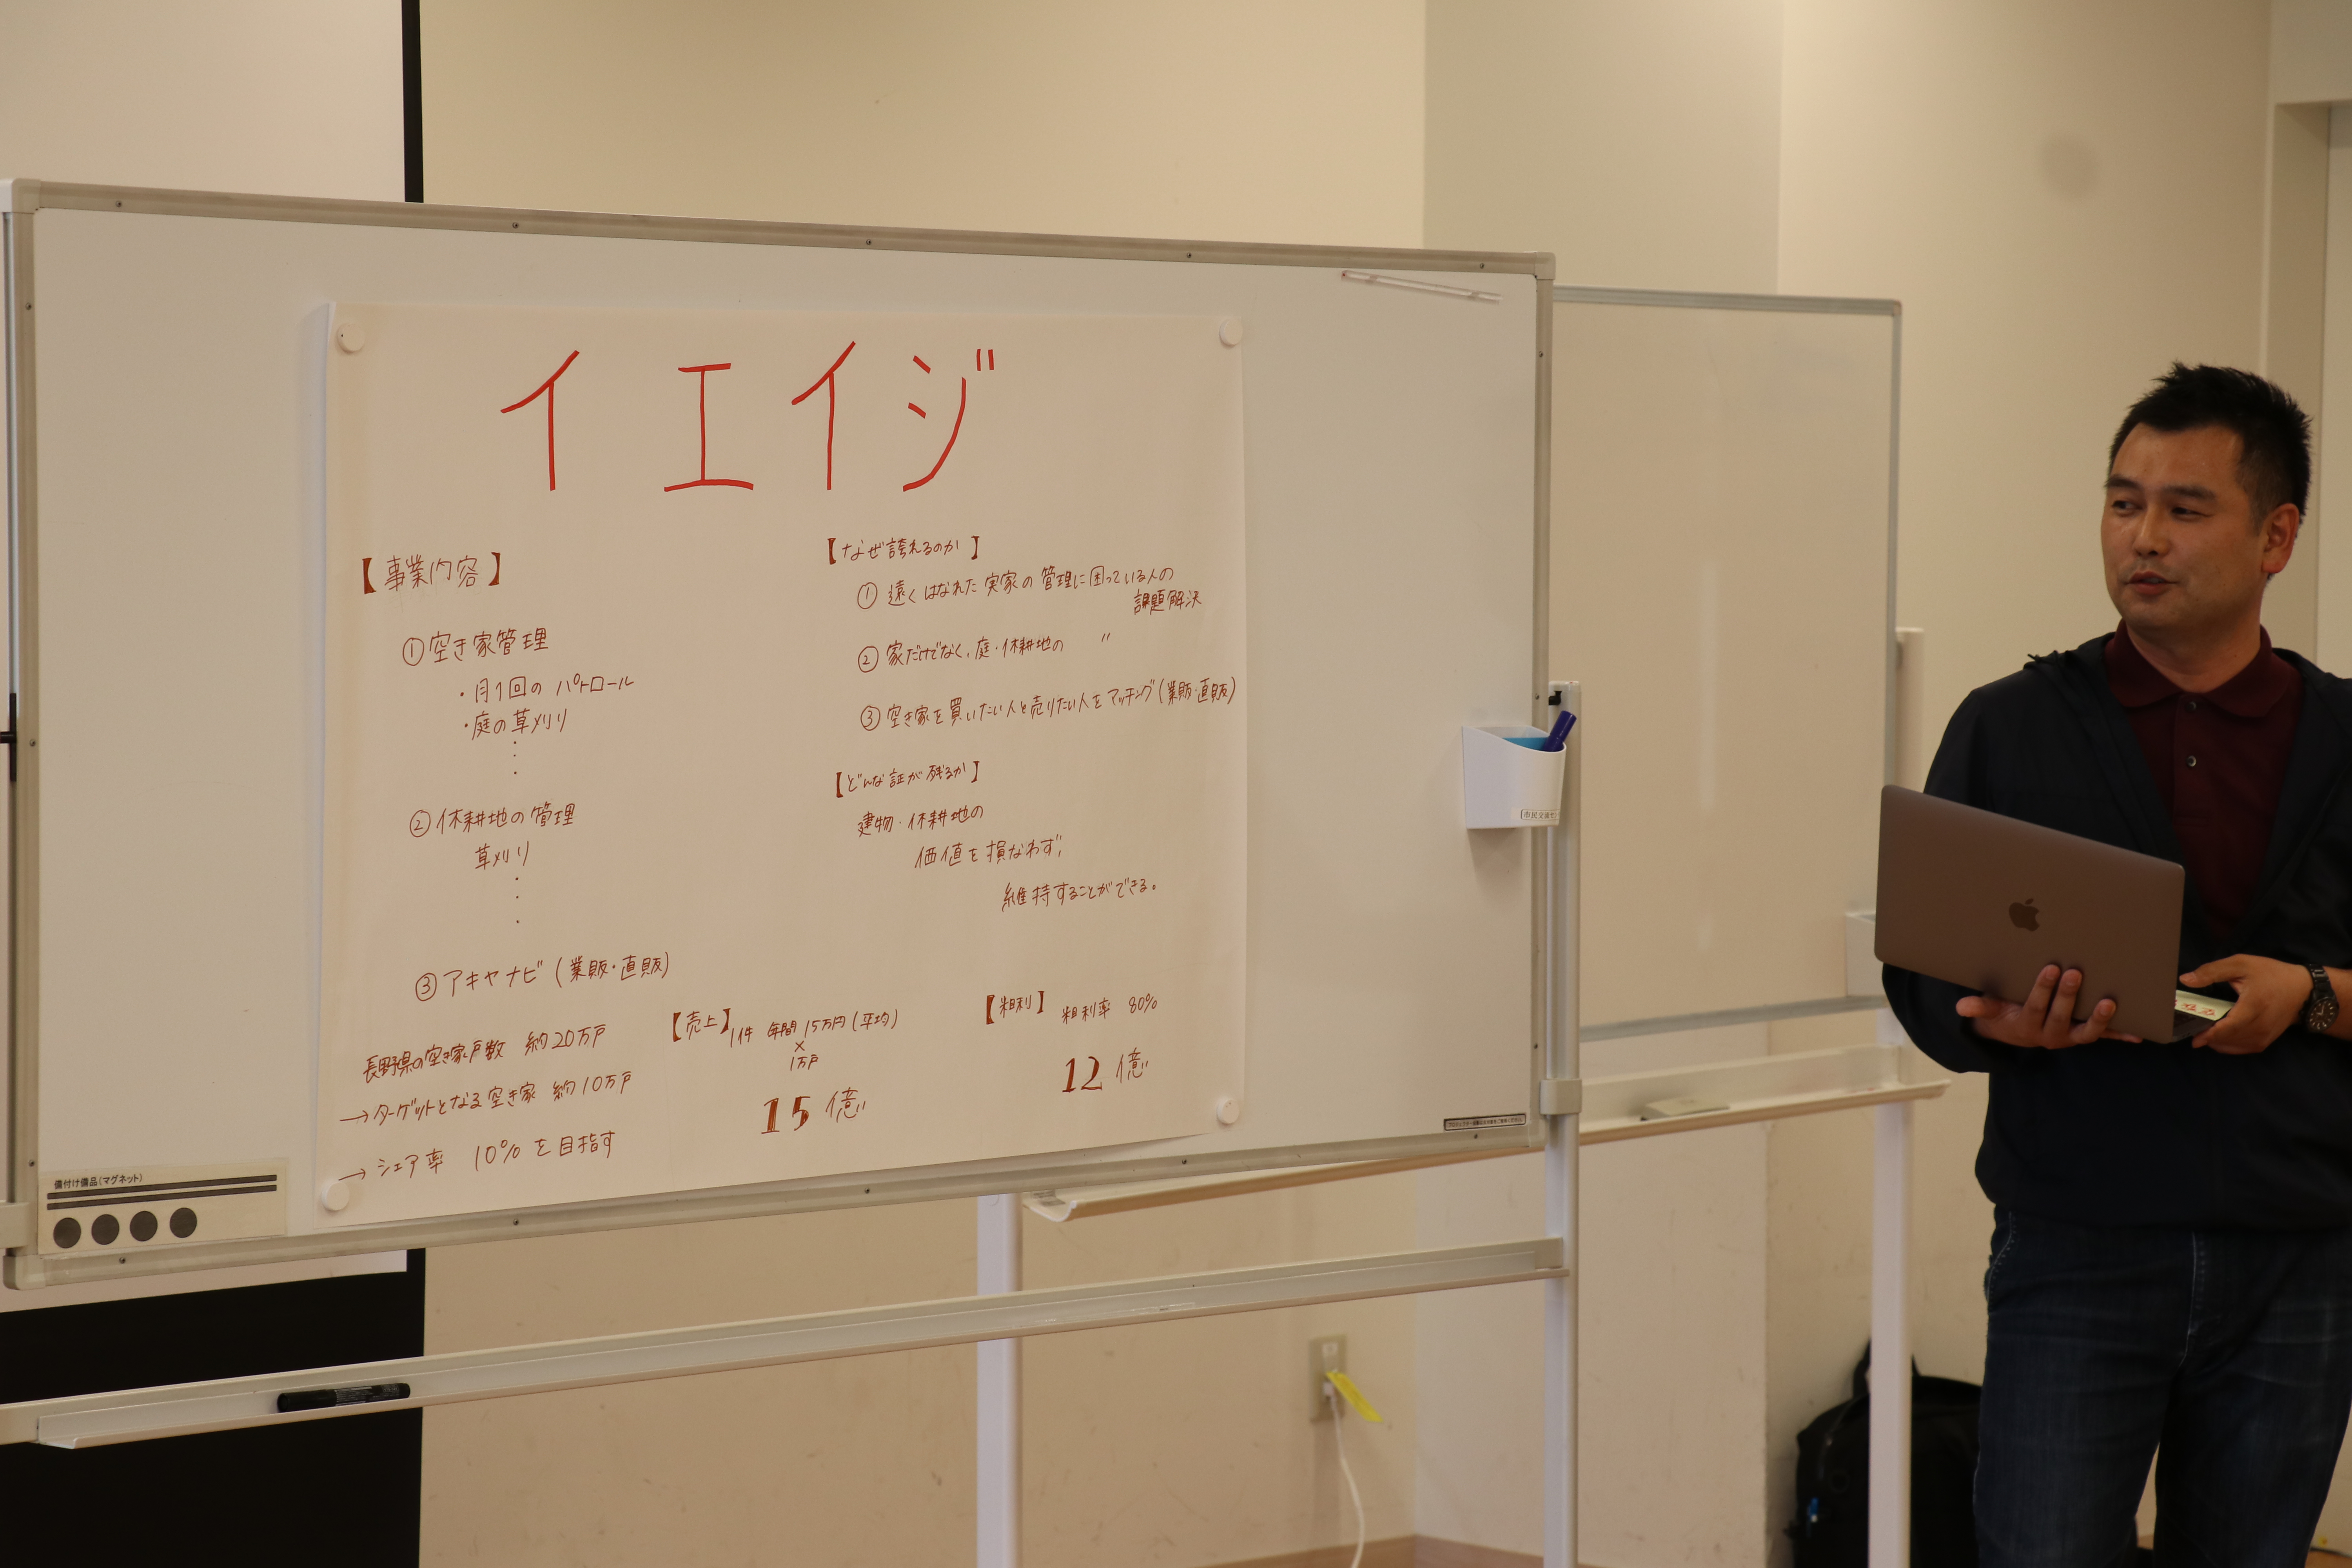 イエイジ
【事業内容】
①空き家管理
・月1回の パトロール
・庭の草刈り
②休耕地の管理
草刈り
③アキヤナビ(業販・直販)
長野県の空き家戸数 約20万戸
→ターゲットとなる空き家 約10万戸
→シェア率 10%を目指す
【なぜ誇れるのか】
①遠くはなれた実家の管理に困っている人の
課題解決
②家だけでなく、庭・休耕地の 〃
③空き家を買いたい人と売りたい人をマッチング(業販・直販)
【どんな証が残るか】
建物・休耕地の
価値を損なわず、
維持することができる。
【売上】1件 年間15万円(平均)
×
1万戸
15億
【粗利】 粗利率 80%
12億
備付け備品(マグネット)